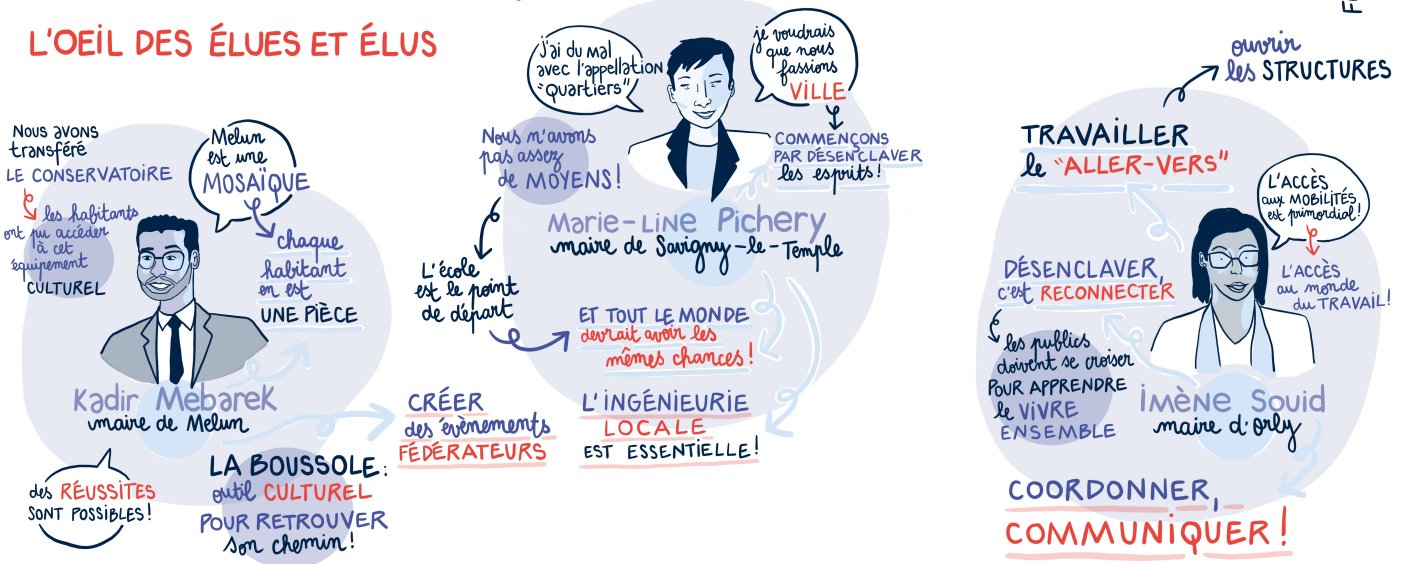 L'OEIL DES ÉLUES ET ÉLUS
Nous avons
transféré
LE CONSERVATOIRE
les habitants
ont pu accéder
à cet
équipement
CULTUREL
Melun
est une
MOSAÏQUE
chaque
habitant
en est
UNE PIÈCE
Kadir Mebarek
maire de Melun
des RÉUSSITES
SONT POSSIBLES!
LA BOUSSOLE:
outil CULTUREL
POUR RETROUVER
son chemin!
CRÉER
des évènements
FÉDÉRATEURS
j'ai du mal
avec l'appellation
"quartiers"
je voudrais
que nous
fassions
VILLE
COMMENÇONS
PAR DÉSENCLAVER
les esprits!
Nous n'avons
pas assez
de MOYENS!
Marie-Line Pichery
maire de Savigny-le-Temple
L'école
est le point
de départ
ET TOUT LE MONDE
devrait avoir les
mêmes chances!
L'INGÉNIEURIE
LOCALE
EST ESSENTIELLE!
ouvrir
les STRUCTURES
TRAVAILLER
le "ALLER-VERS"
L'ACCÈS
aux MOBILITÉS
est primordial!
L'ACCÈS
au monde
du TRAVAIL!
DÉSENCLAVER,
c'est RECONNECTER
les publics
doivent se croiser
POUR APPRENDRE
le VIVRE
ENSEMBLE
Imène Souid
maire d'orly
COORDONNER,
COMMUNIQUER!